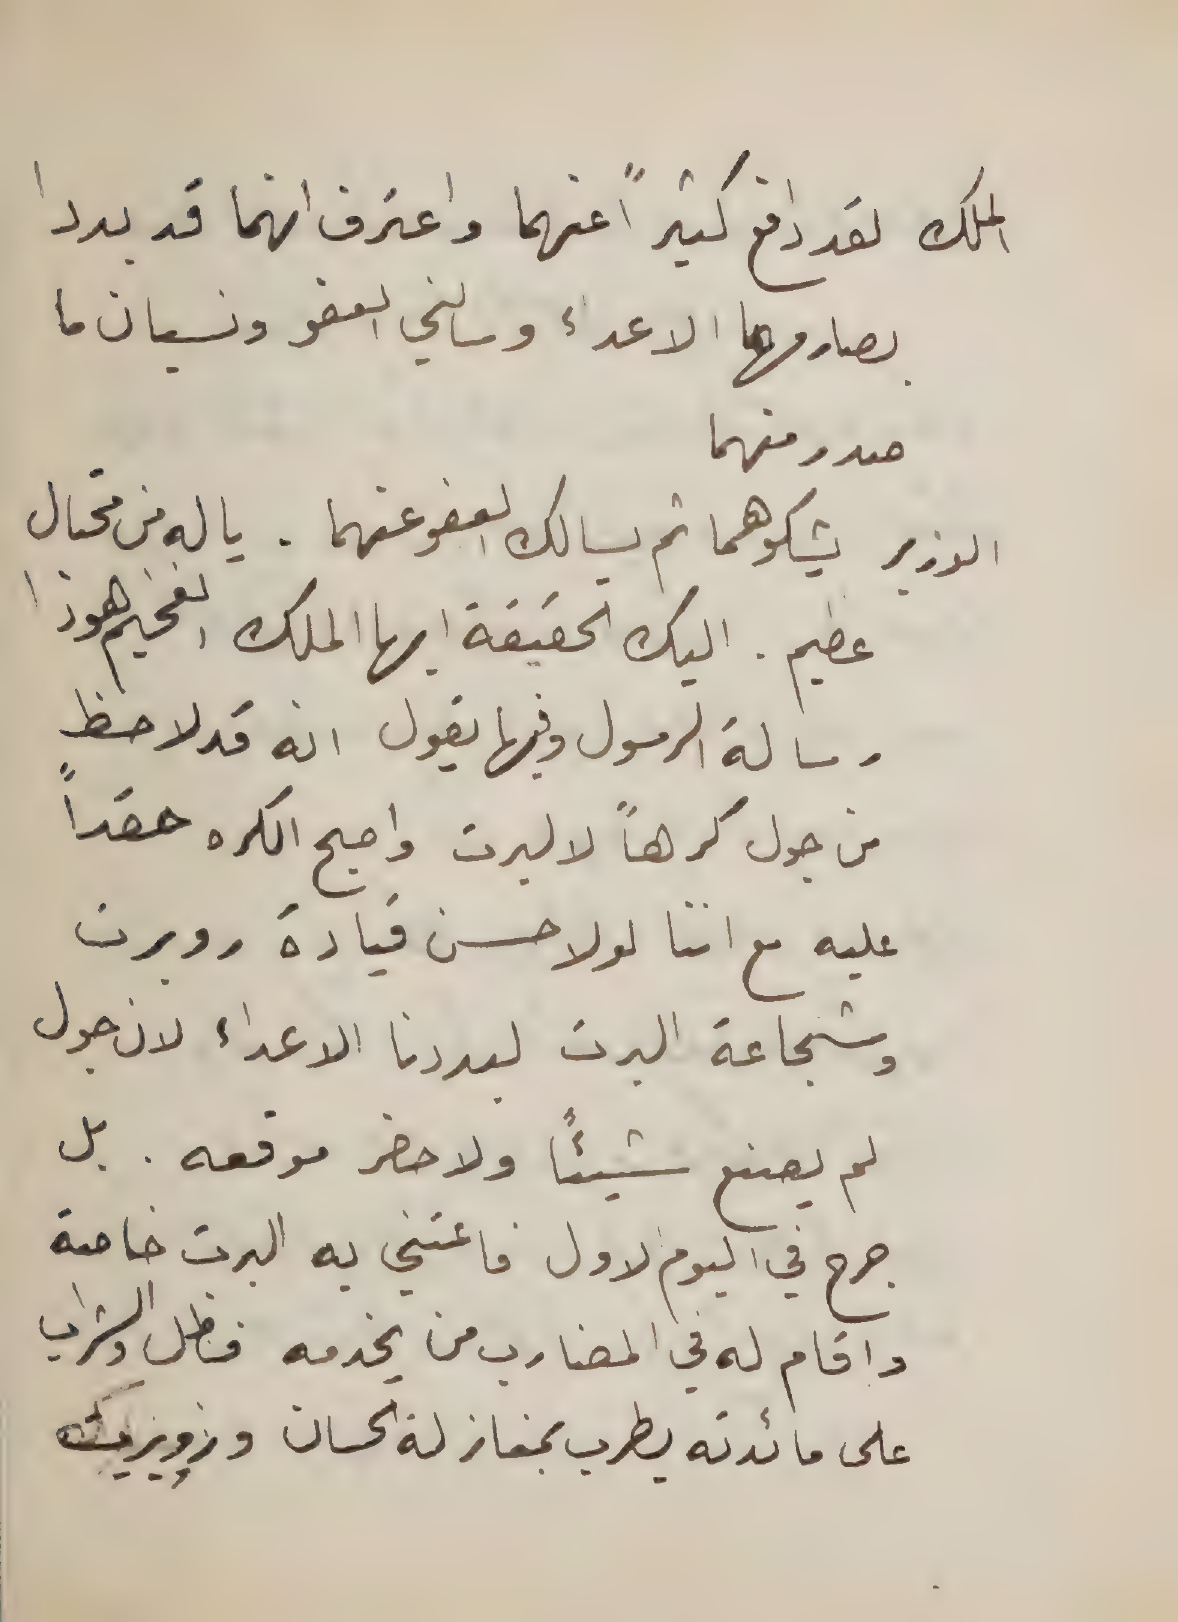 الملك لقد دافع كثيراً عنهما واعترف انهما قد بددا
بصارمهما الاعداء وسالني العفو ونسيان ما
صدر منهما
الوزير يشكوهما ثم يسالك العفو عنهما . يا له من محتال
عظيم . اليك الحقيقة ايها الملك الفخيم هوذا
رسالة الرسول وفيها يقول انه قد لاحظ
من جول كرهاً لالبرت واصبح الكره حقداً
عليه مع اننا لولا حسن قيادة روبرت
وشجاعة البرت لبددنا الاعداء لان جول
لم يصنع شيئاً ولا حضر موقعه . بل
جرح في اليوم الاول فاعتنى به البرت خاصة
واقام له في المضارب من يخدمه فظل والشراب
على مائدته يطرب بمغازلة الحسان